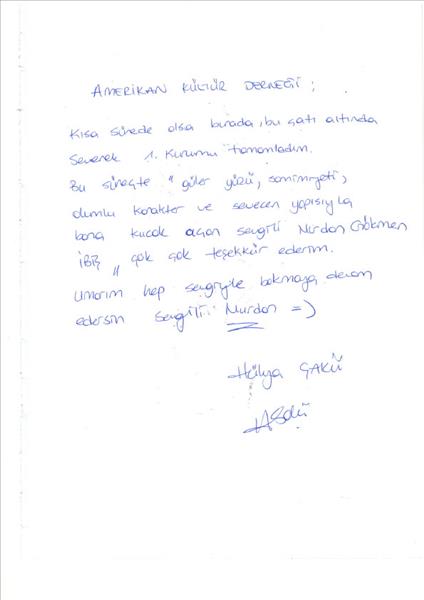 AMERİKAN KÜLTÜR DERNEĞİ ;
Kısa sürede olsa burada, bu çatı altında
Severek 1. Kurumu tamamladım.
Bu süreçte " güler yüzü, samimiyeti,
olumlu karakter ve sevecen yapısıyla
bana kucak açan sevgili Nurdan Gökmen
İBİŞ " çok çok teşekkür ederim.
Umarım hep sevgiyle bakmaya devam
edersin sevgili Nurdan =)
Hülya ÇAKÜ